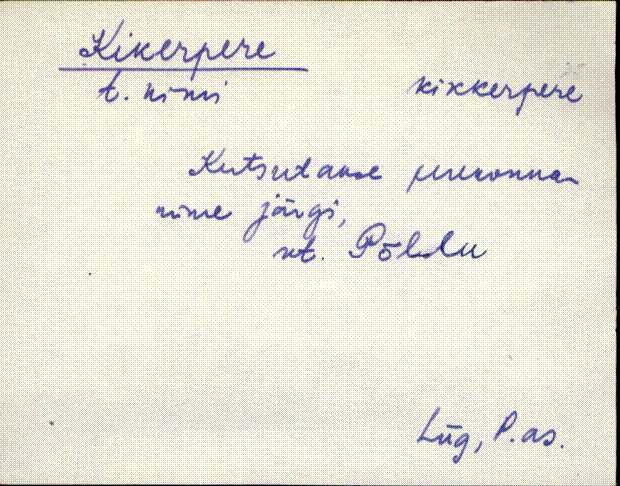 Kikerpere
t. nimi kikkerpere
Kutsutakse perekonna
nime järgi,
vt. Põldu
Lüg, P.as.